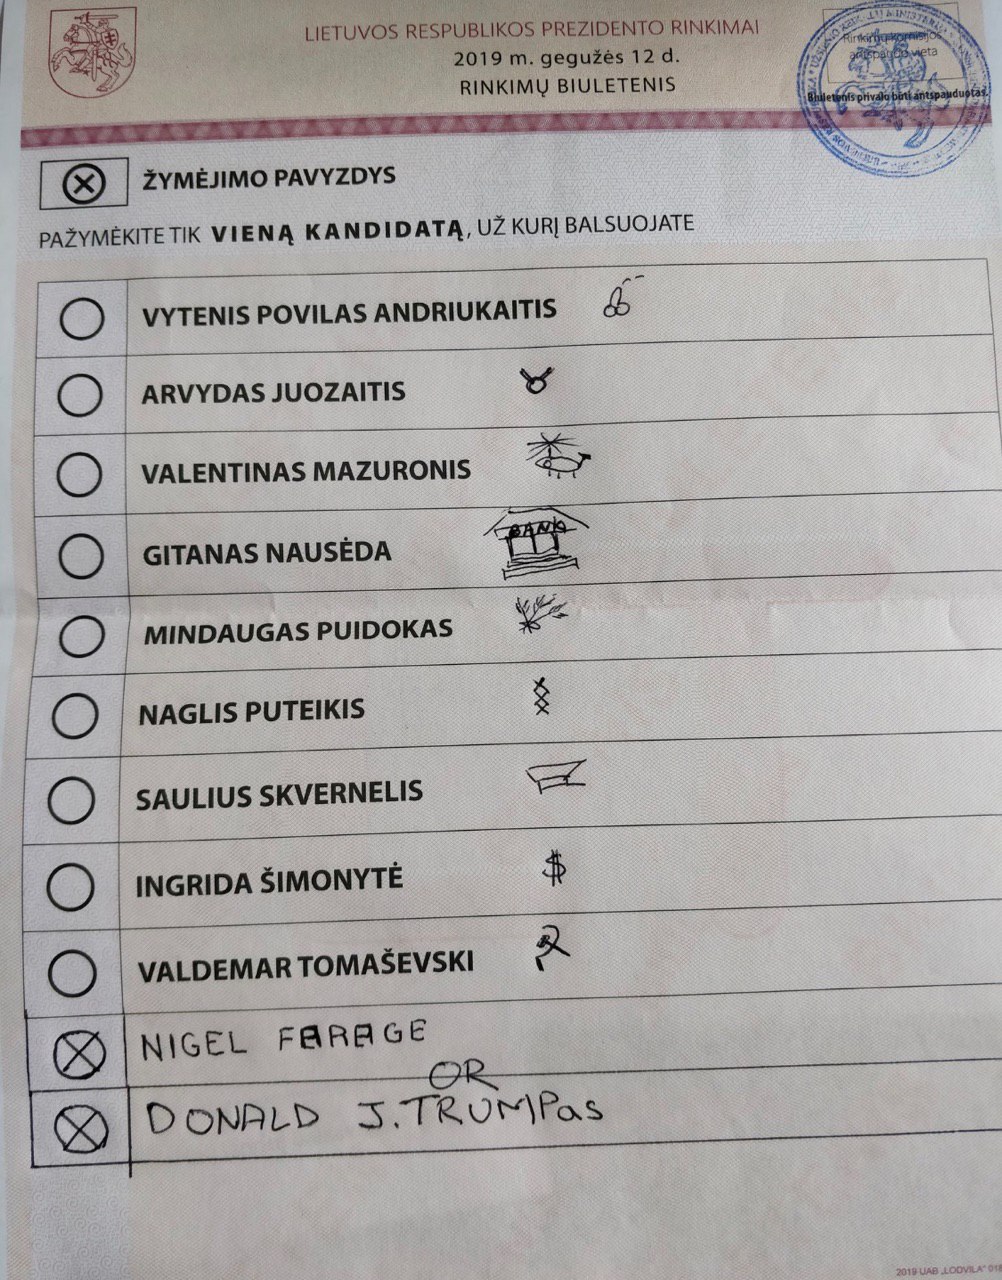 LIETUVOS RESPUBLIKOS PREZIDENTO RINKIMAI
2019 m. gegužės 12 d.
RINKIMŲ BIULETENIS
Rinkimų komisijos
antspaudo vieta
Biuletenis privalo būti antspauduotas.
ŽYMĖJIMO PAVYZDYS
PAŽYMĖKITE TIK VIENĄ KANDIDATĄ, UŽ KURĮ BALSUOJATE
VYTENIS POVILAS ANDRIUKAITIS
ARVYDAS JUOZAITIS
VALENTINAS MAZURONIS
BANK
GITANAS NAUSĖDA
MINDAUGAS PUIDOKAS
NAGLIS PUTEIKIS
SAULIUS SKVERNELIS
INGRIDA ŠIMONYTĖ $
VALDEMAR TOMAŠEVSKI
NIGEL FARAGE
OR
DONALD J. TRUMPas
2019 UAB „LODVILA"